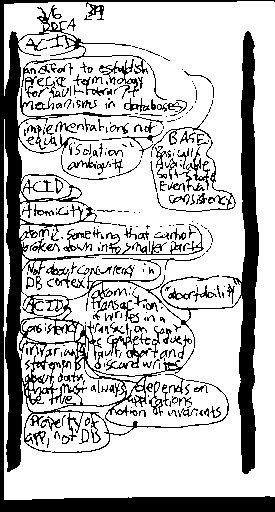 DDIA
ACID
an effort to establish
precise terminology
for fault-tolerant
mechanisms in databases
implementations not
equal
"isolation"
ambiguity
BASE
Basically
Available
Soft-state
Eventual
consistency
ACID
Atomicity
atomic: something that cannot
broken down into smaller parts
Not about concurrency in
DB context
atomic
transaction:
if writes in a
transaction can't
be completed due to
fault, abort and
discard writes
"abortability"
ACID
consistency
invariants
statements
about data
that must always
be true
depends on
applications
notion of invariants
Property of
app, not DB